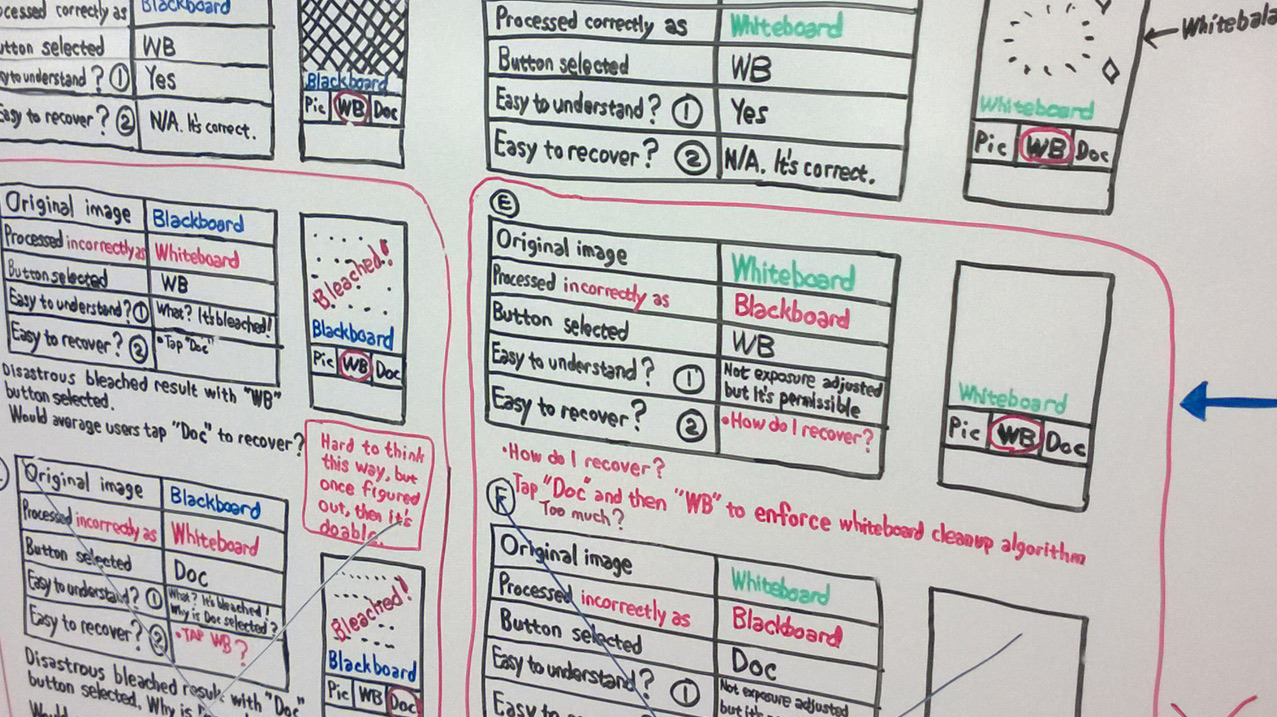 Processed correctly as
Blackboard
Button selected
WB
Easy to understand? ①
Yes
Easy to recover? ②
N/A. It's correct.
Blackboard
Pic WB Doc
Processed correctly as
Whiteboard
Button selected
WB
Easy to understand? ①
Yes
Easy to recover? ②
N/A. It's correct.
Whiteboard
Pic WB Doc
Original image
Blackboard
Processed incorrectly as
Whiteboard
Button selected
WB
Easy to understand? ①
What? It's bleached!
Easy to recover? ②
• Tap "Doc"
Bleached!
Blackboard
Pic WB Doc
Disastrous bleached result with "WB"
button selected.
Would average users tap "Doc" to recover?
Hard to think
this way, but
once figured
out, then it's
doable.
Original image
Blackboard
Processed incorrectly as
Whiteboard
Button selected
Doc
Easy to understand? ①
What? It's bleached!
Why is Doc selected?
Easy to recover? ②
• TAP WB?
Bleached!
Blackboard
Pic WB Doc
Disastrous bleached result with "Doc"
button selected. Why is
Would
Ⓔ
Original image
Whiteboard
Processed incorrectly as
Blackboard
Button selected
WB
Easy to understand? ①
Not exposure adjusted
but it's permissible
Easy to recover? ②
• How do I recover?
Whiteboard
Pic WB Doc
• How do I recover?
Tap "Doc" and then "WB" to enforce whiteboard cleanup algorithm
Too much?
Ⓕ
Original image
Whiteboard
Processed incorrectly as
Blackboard
Button selected
Doc
Easy to understand? ①
Not exposure adjusted
Easy to